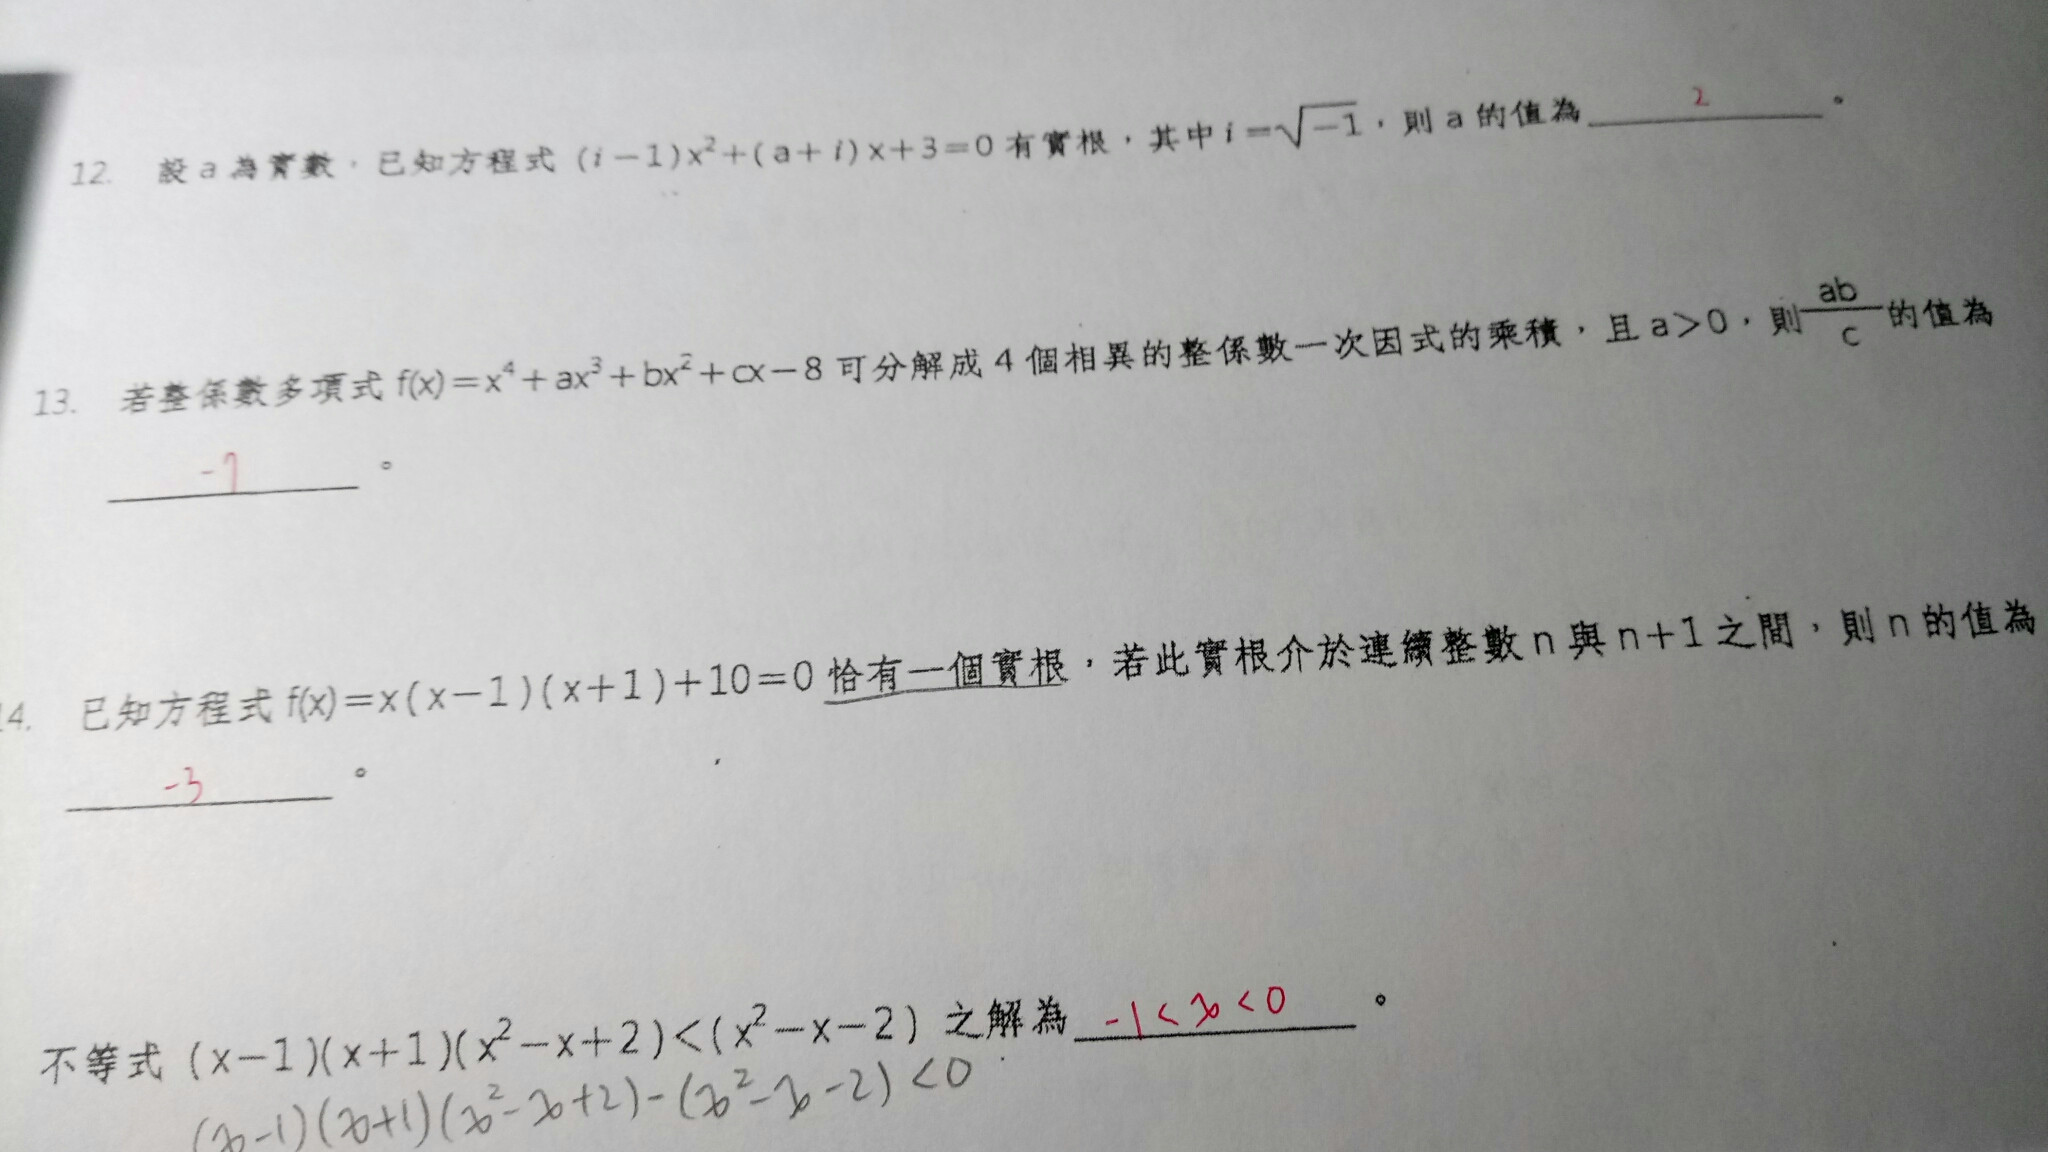 12. 設 a 為實數，已知方程式 (i－1)x²＋(a＋i)x＋3＝0 有實根，其中 i＝√－1，則 a 的值為 2 。
13. 若整係數多項式 f(x)＝x⁴＋ax³＋bx²＋cx－8 可分解成 4 個相異的整係數一次因式的乘積，且 a＞0，則 ab/c 的值為
-7 。
14. 已知方程式 f(x)＝x(x－1)(x＋1)＋10＝0 恰有一個實根，若此實根介於連續整數 n 與 n＋1 之間，則 n 的值為
-3 。
不等式 (x－1)(x＋1)(x²－x＋2)＜(x²－x－2) 之解為 -1<x<0 。
(x-1)(x+1)(x²-x+2)-(x²-x-2)<0